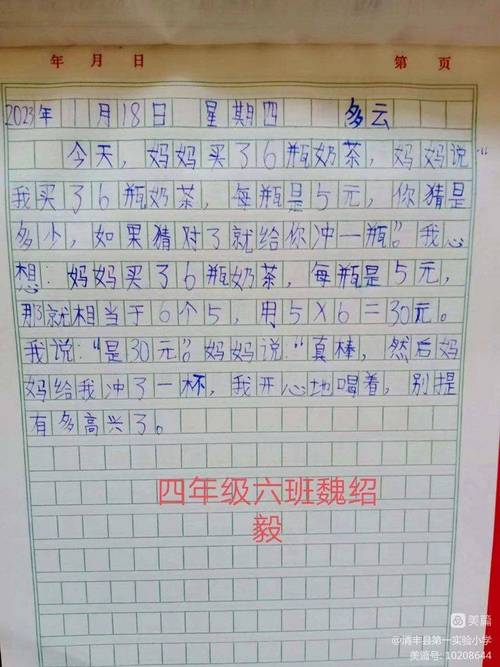 年 月 日 第 页
2023年1月18日 星期四 多云
今天，妈妈买了6瓶奶茶，妈妈说“
我买了6瓶奶茶，每瓶是5元，你猜是
多少，如果猜对了就给你冲一瓶”。我心
想：妈妈买了6瓶奶茶，每瓶是5元，
那就相当于6个5，用5×6=30元。
我说：“是30元”。妈妈说：“真棒，然后妈
妈给我冲了一杯，我开心地喝着，别提
有多高兴了。
四年级六班魏绍
毅
美篇
@清丰县第一实验小学
美篇号: 10208644